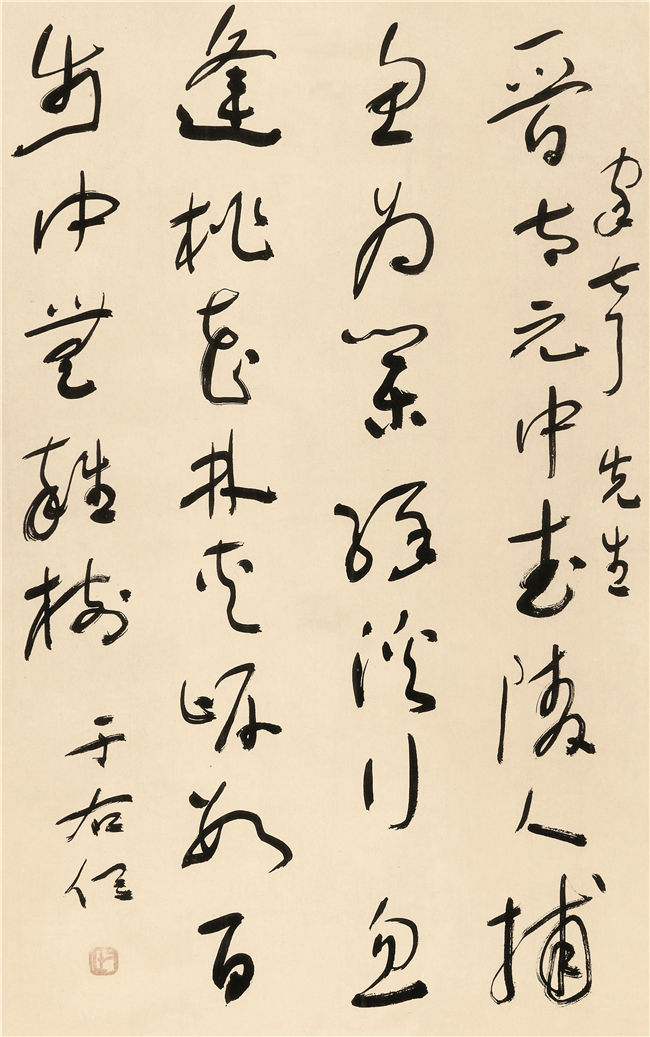 先生
晉太元中武陵人捕
魚為業緣溪行忽
逢桃花林夾岸數百
步中無雜樹
于右任